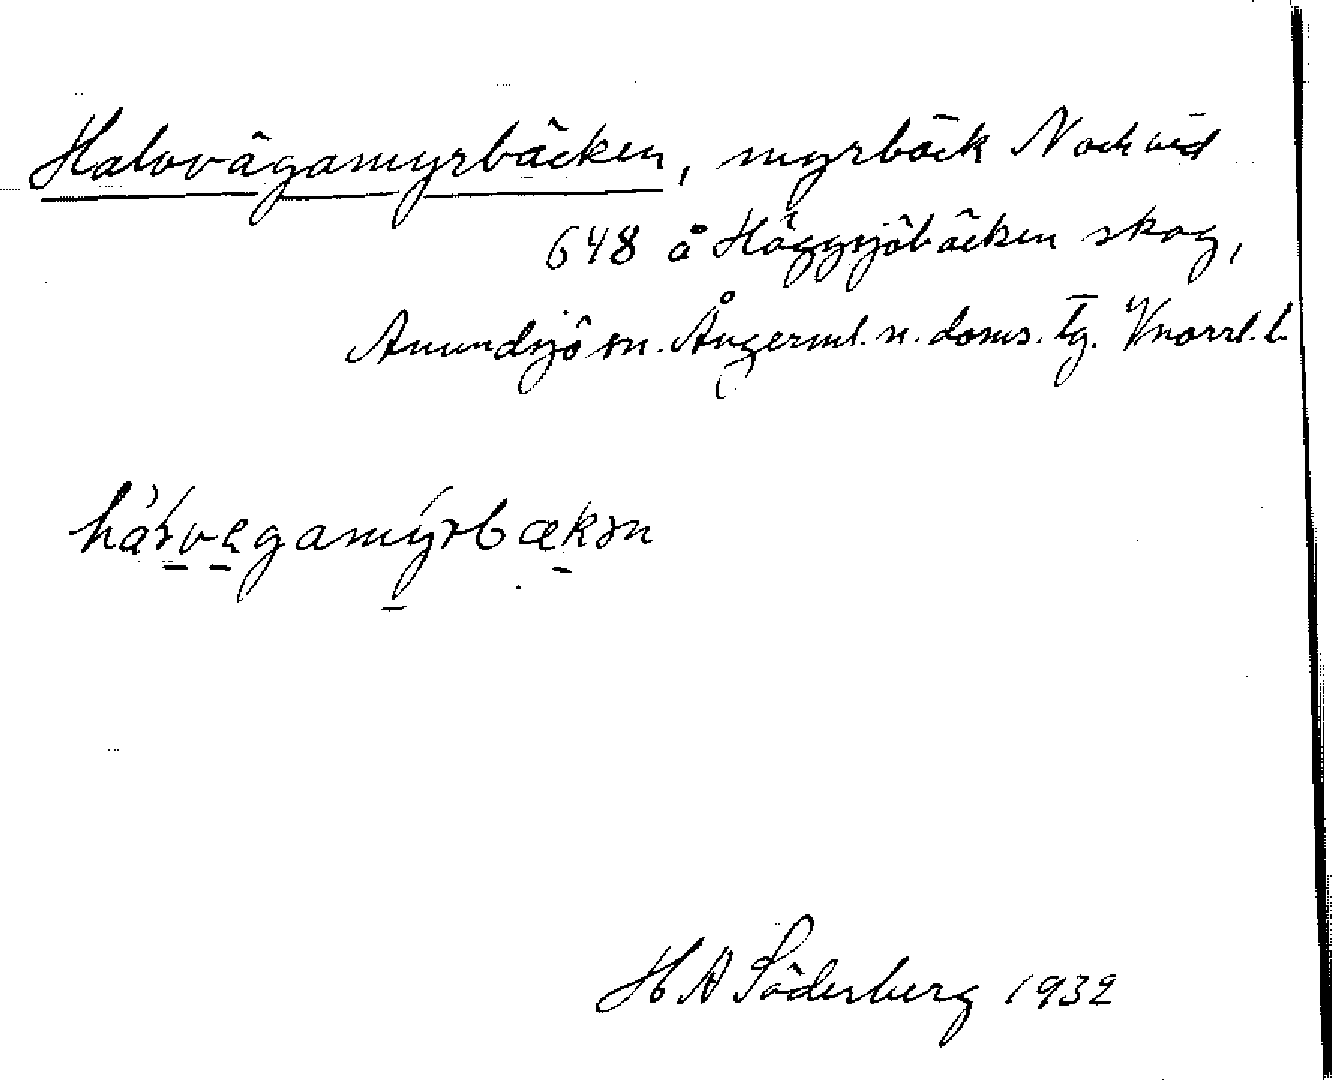 Halvvägamyrbäcken, myrbäck N och vid
648 å Häggsjöbäcken skog,
Anundsjö sn. Ångerml. n. doms. tg. Vnorrl. l.
H A Söderberg 1932